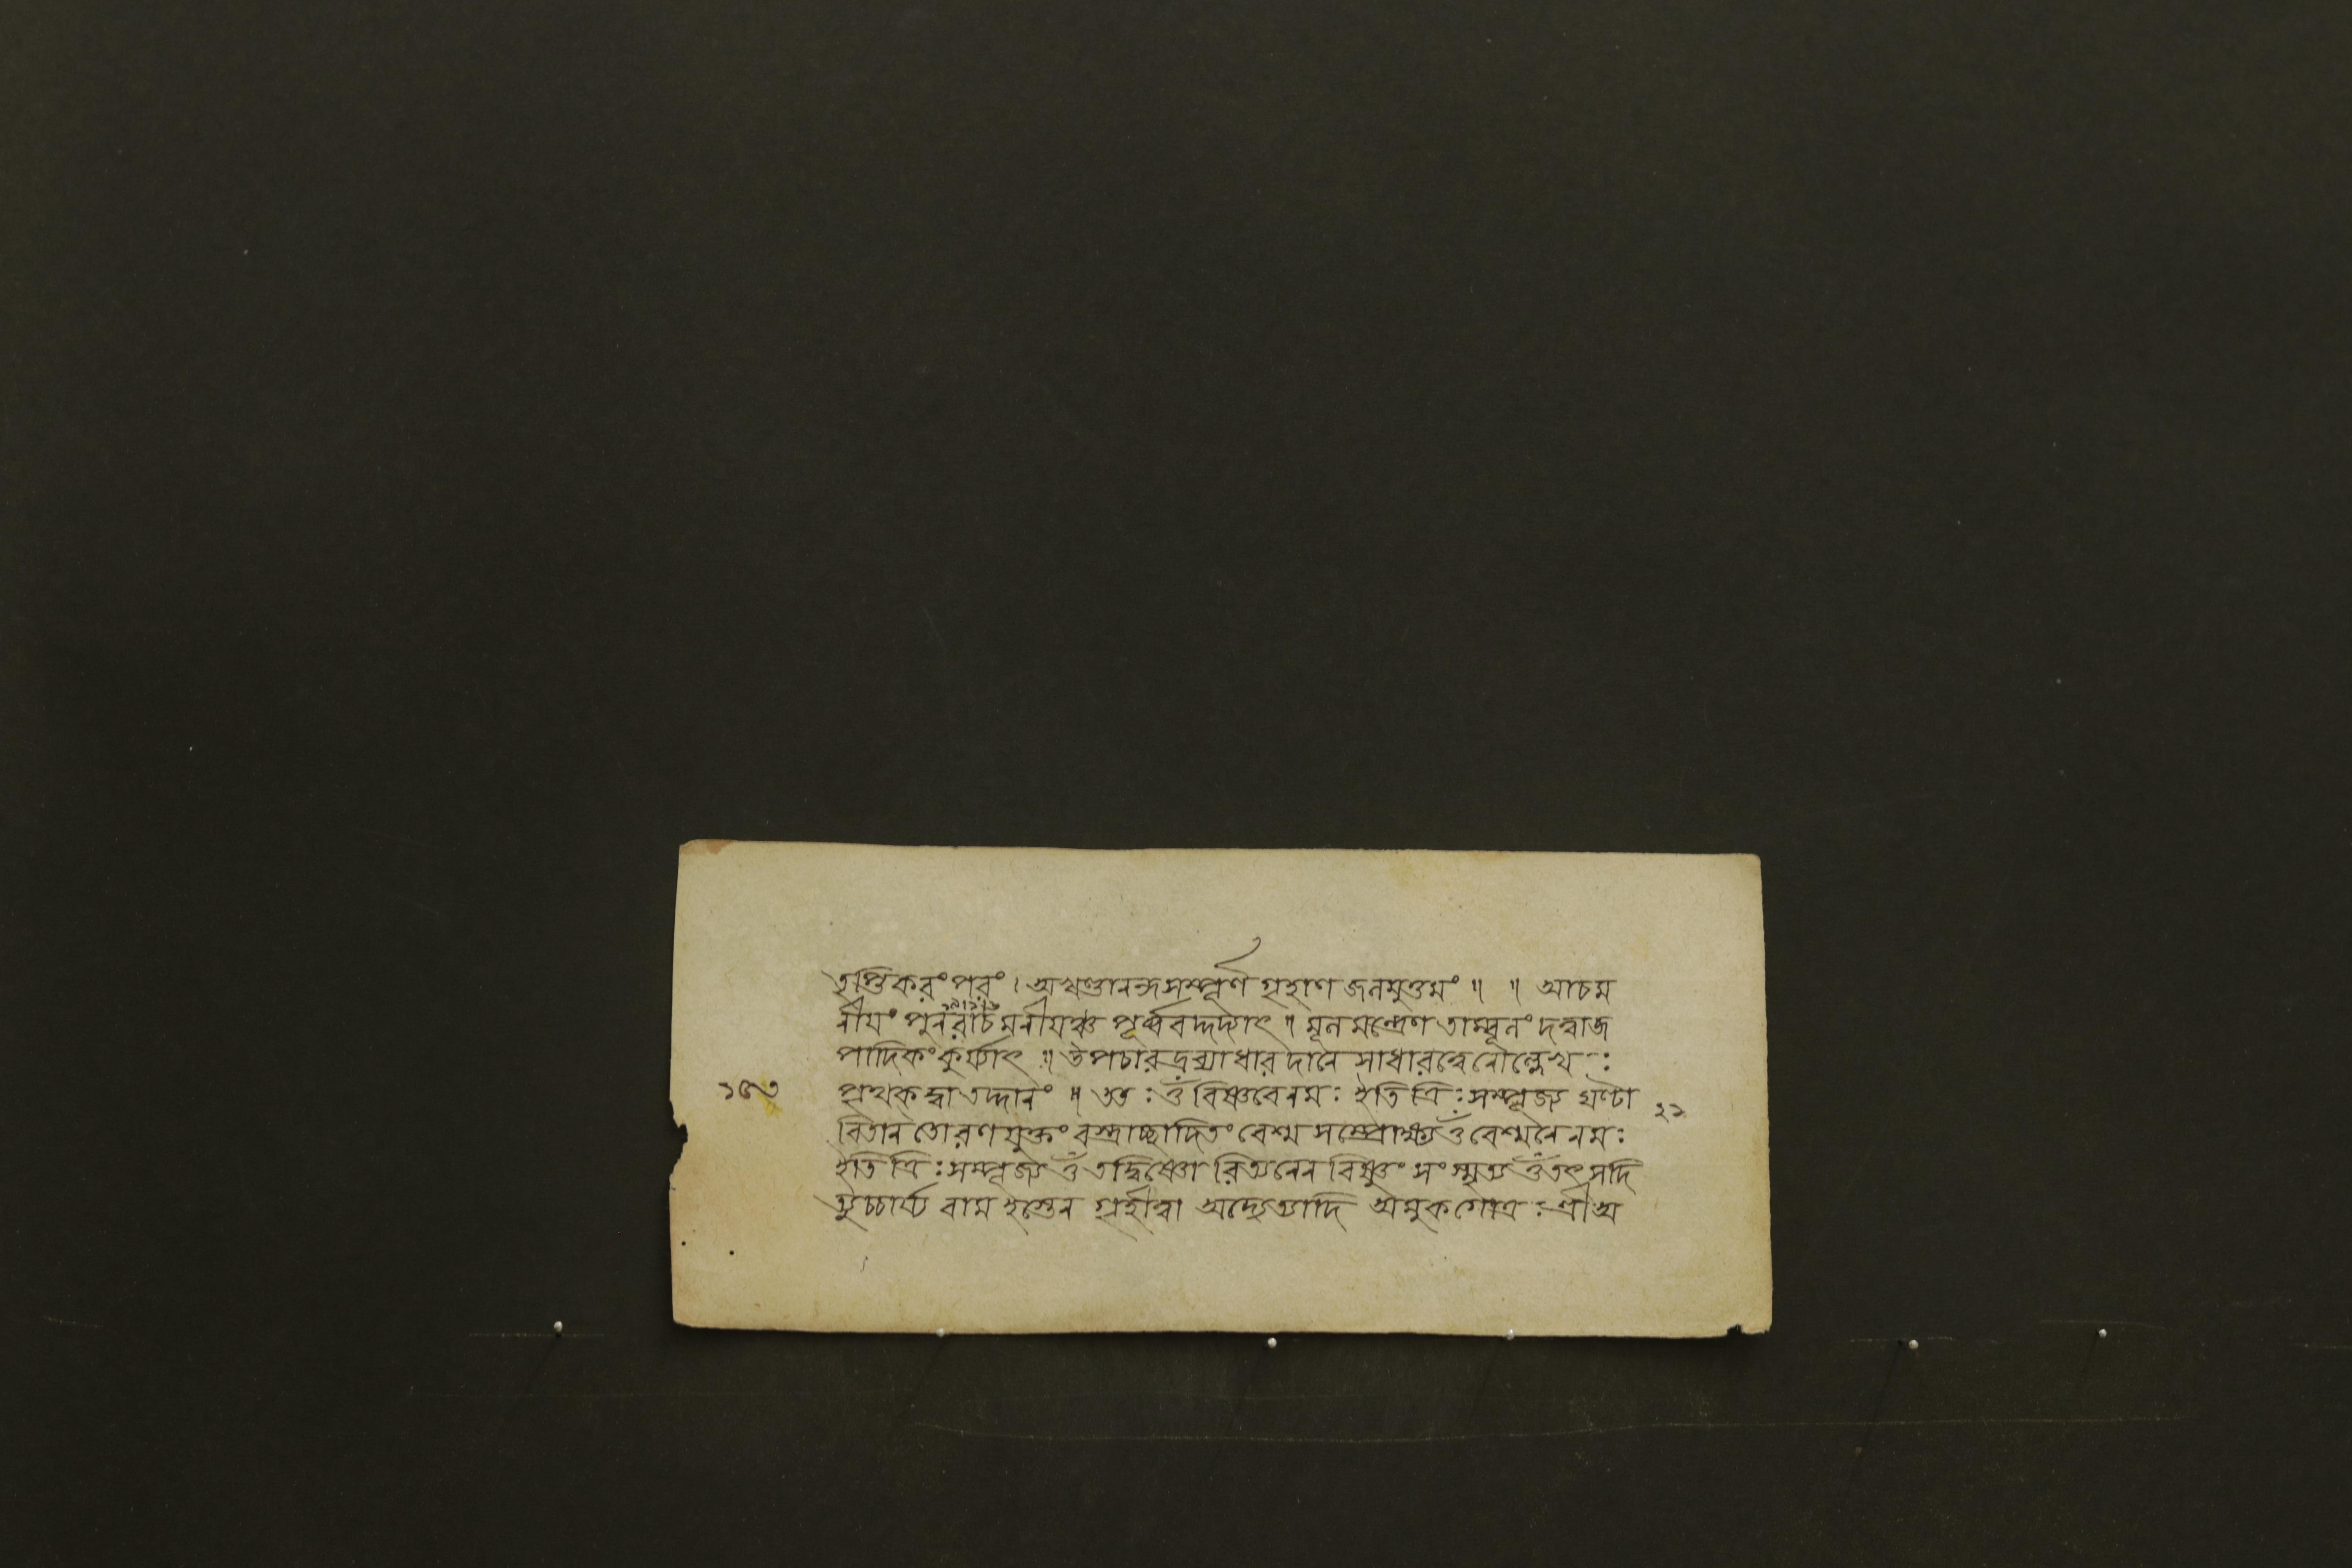 তৃপ্তিকরং পরং । অখণ্ডানন্দসম্পূর্ণ গৃহাণ জলমুত্তমং ॥ ॥ আচম
নীয়ং পুনরাচমনীয়ঞ্চ পূর্ব্ববদ্দদ্যাৎ ॥ মূলমন্ত্রেণ তাম্বূলং দত্ত্বাজ
পাদিকং কুর্য্যাৎ ॥ উপচারদ্রব্যাধারদানে সাধারত্বেনোল্লেখঃ
পৃথকদ্বা তদ্দানং ॥ ততঃ ওঁ বিষ্ণবেনমঃ ইতি ত্রিঃ সম্পূজ্য ঘণ্টা
বিতান তোরণযুক্তং বস্ত্রাচ্ছাদিতং বেশ্ম সম্প্রোক্ষ্য ওঁ বেশ্মনেনমঃ
ইতি ত্রিঃ সম্পূজ্য ওঁ তদ্বিষ্ণোরিত্যনেন বিষ্ণুং সংস্মৃত্য ওঁ তৎসদি
ত্যুচ্চার্য্য বামহস্তেন গৃহীত্বা অদ্যেত্যাদি অমুকগোত্রঃ শ্রীঅ
২১